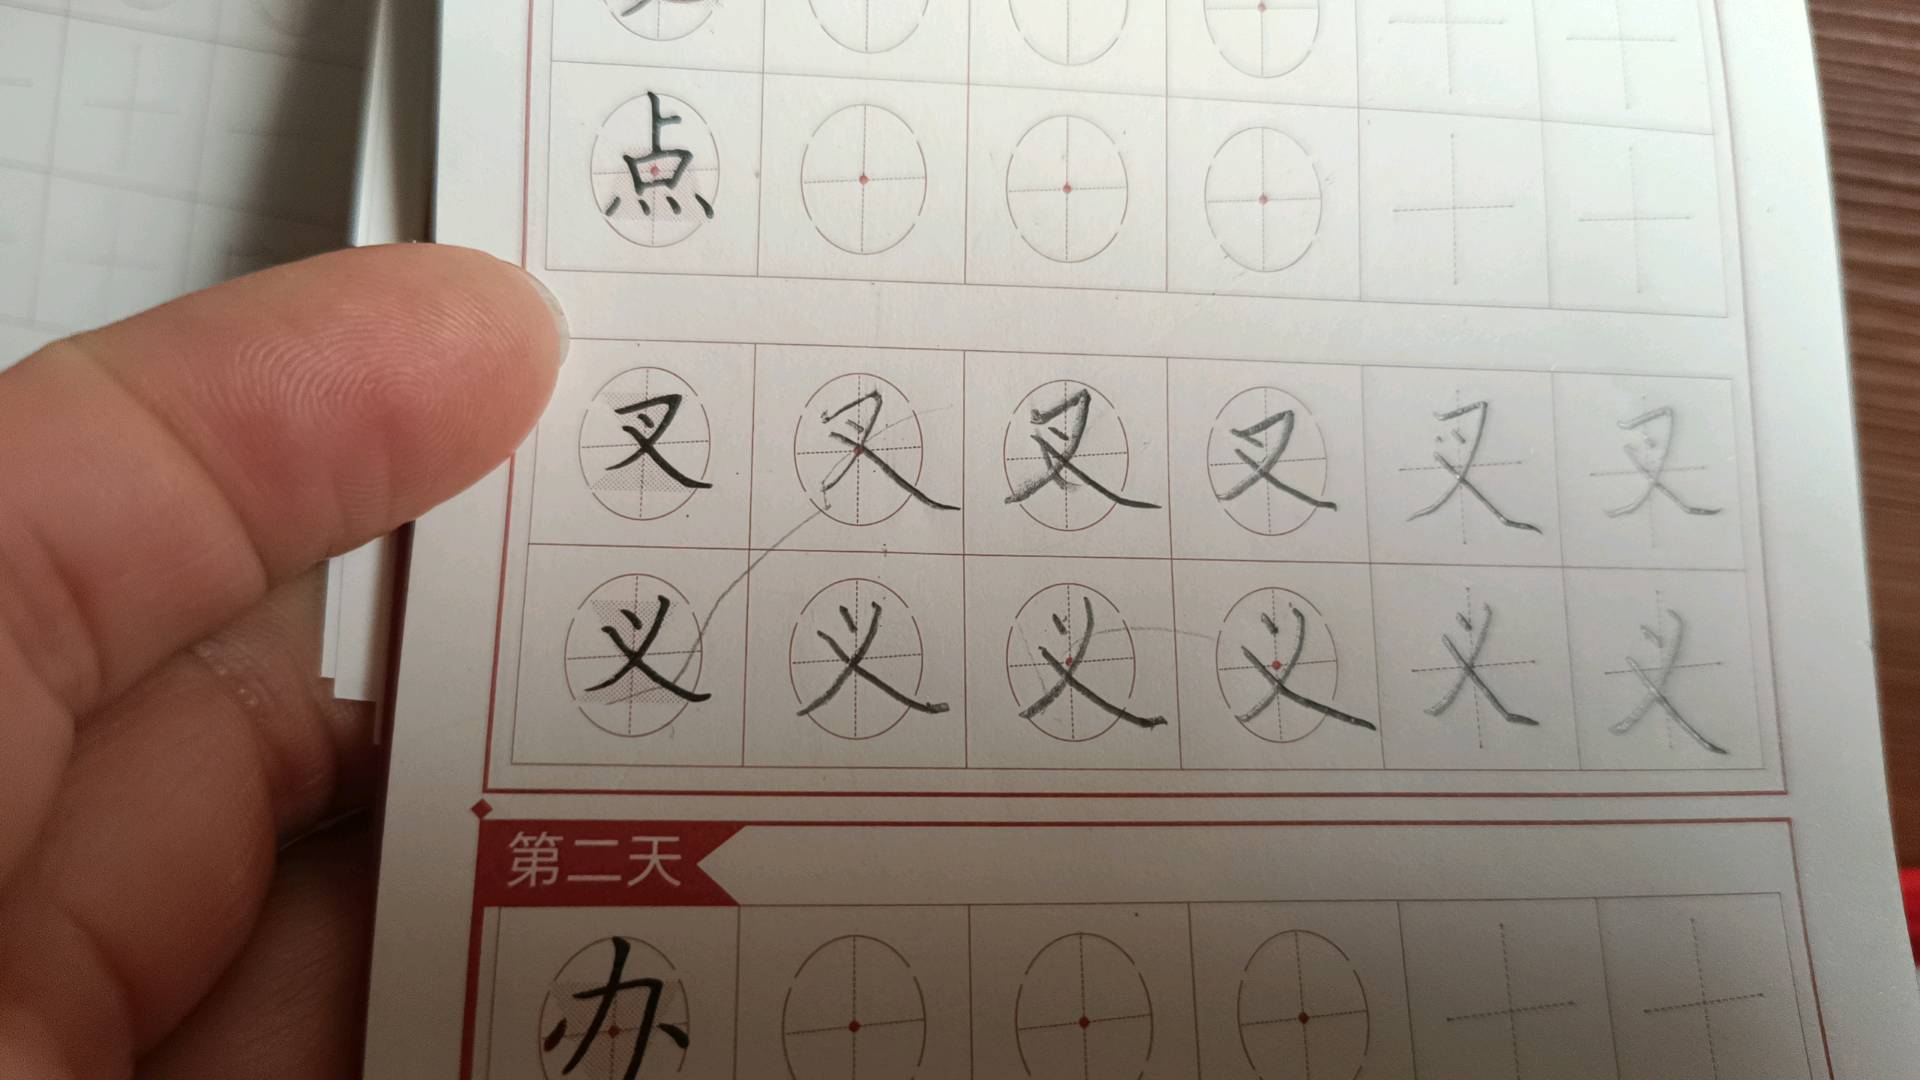 点
叉叉叉叉叉叉
义义义义义义
第二天
办